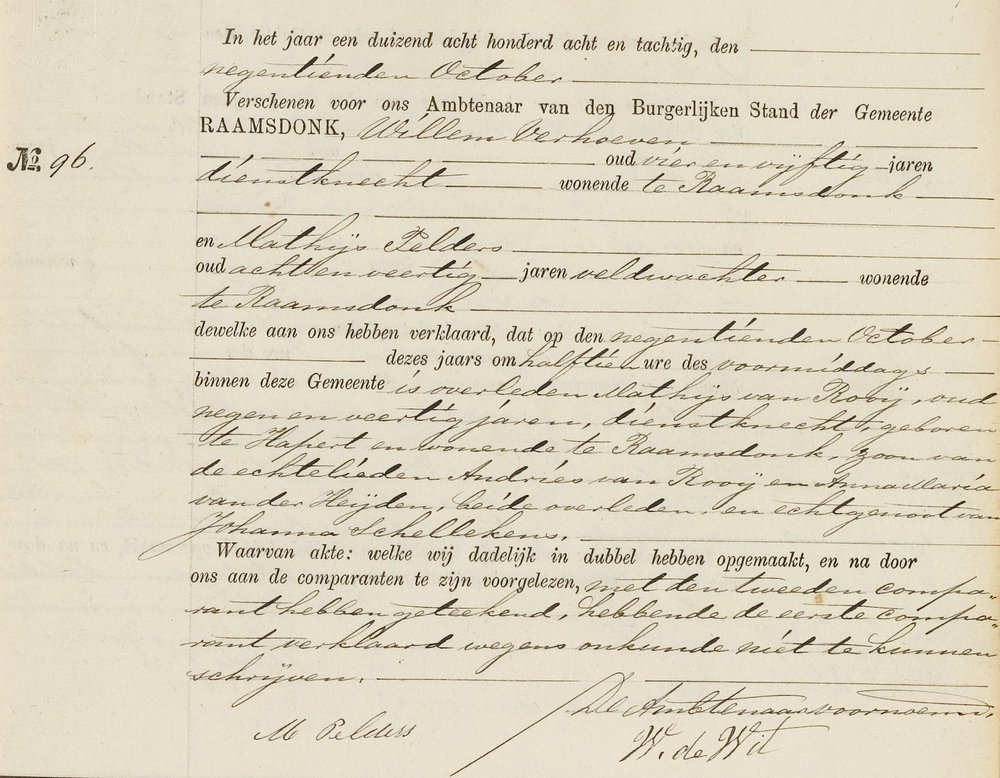 In het jaar een duizend acht honderd acht en tachtig, den
negentienden October
Verschenen voor ons Ambtenaar van den Burgerlijken Stand der Gemeente
RAAMSDONK, Willem Verhoeven
No. 96.
oud vier en vijftig jaren
dienstknecht wonende te Raamsdonk
en Mathijs Pelders
oud acht en veertig jaren veldwachter wonende
te Raamsdonk
dewelke aan ons hebben verklaard, dat op den negentienden October
dezes jaars om half tien ure des voormiddags
binnen deze Gemeente is overleden Mathijs van Rooij, oud
negen en veertig jaren, dienstknecht, geboren
te Hapert en wonende te Raamsdonk, zoon van
de echtelieden Andries van Rooij en Anna Maria
van der Heijden, beide overleden, en echtgenoot van
Johanna Schellekens.
Waarvan akte: welke wij dadelijk in dubbel hebben opgemaakt, en na door
ons aan de comparanten te zijn voorgelezen, met den tweeden compa-
rant hebben geteekend, hebbende de eerste compa-
rant verklaard wegens onkunde niet te kunnen
schrijven.
De Ambtenaar voornoemd,
M Pelders
W. de Wit